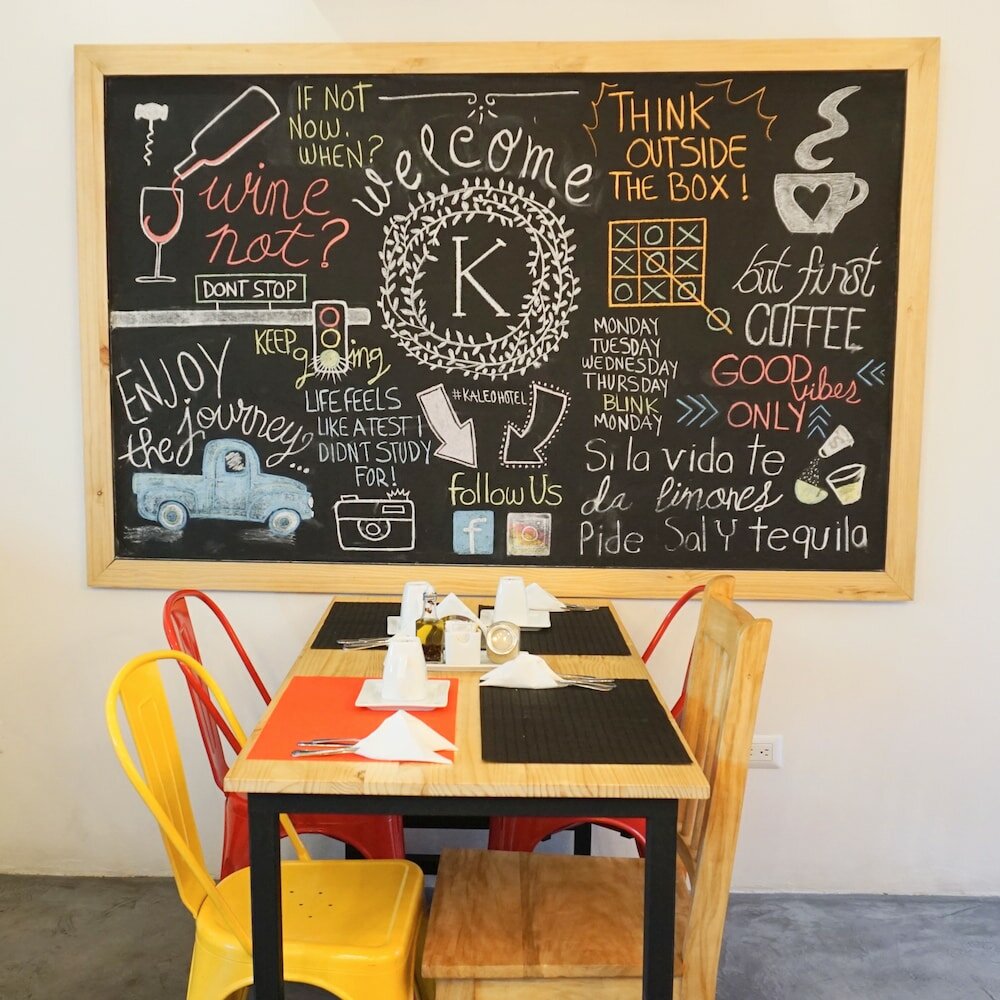 IF NOT
NOW.
WHEN?
wine
not?
DONT STOP
KEEP
going
ENJOY
the journey...
LIFE FEELS
LIKE A TEST I
DIDNT STUDY
FOR!
welcome
K
#KALEOHOTEL
follow Us
f
THINK
OUTSIDE
THE BOX!
X O X
X O X
O X O
MONDAY
TUESDAY
WEDNESDAY
THURSDAY
BLINK
MONDAY
but first
COFFEE
GOOD vibes
ONLY
Si la vida te
da limones
Pide Sal Y tequila